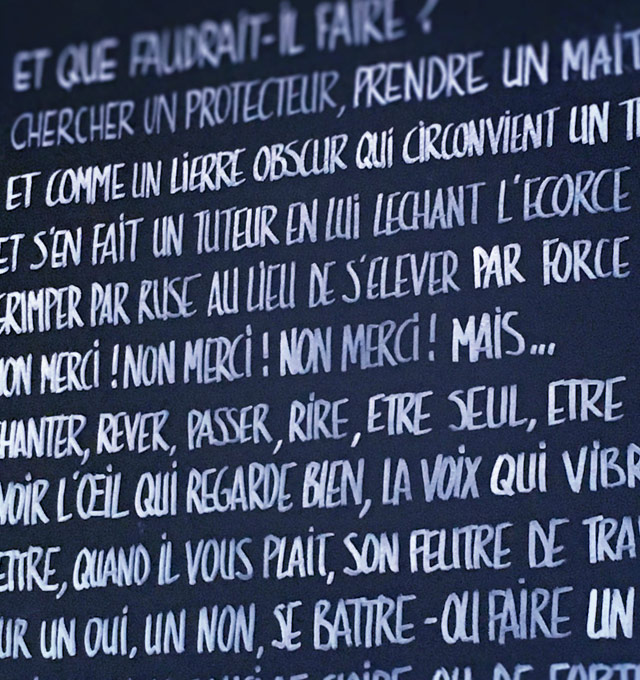 ET QUE FAUDRAIT-IL FAIRE ?
CHERCHER UN PROTECTEUR, PRENDRE UN MAIT
ET COMME UN LIERRE OBSCUR QUI CIRCONVIENT UN T
ET S'EN FAIT UN TUTEUR EN LUI LECHANT L'ECORCE
GRIMPER PAR RUSE AU LIEU DE S'ELEVER PAR FORCE
NON MERCI ! NON MERCI ! NON MERCI ! MAIS...
HANTER, REVER, PASSER, RIRE, ETRE SEUL, ETRE
VOIR L'ŒIL QUI REGARDE BIEN, LA VOIX QUI VIBR
ETTRE, QUAND IL VOUS PLAIT, SON FEUTRE DE TRA
UR UN OUI, UN NON, SE BATTRE - OU FAIRE UN